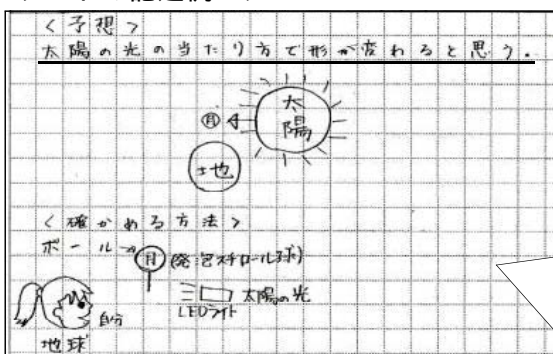 <予想>
太陽の光の当たり方で形が変わると思う.
太陽
月
地
<確かめる方法>
ボール→
月
(発泡スチロール球)
太陽の光
LEDライト
自分
地球